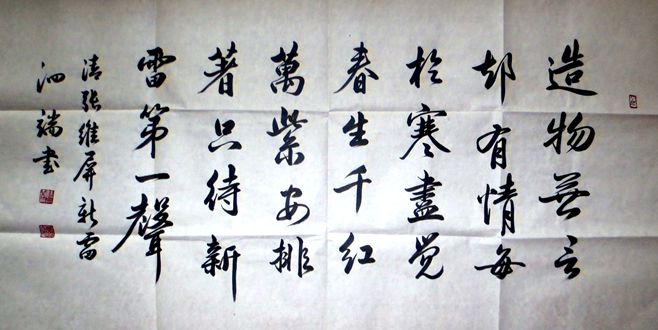 造物無言
却有情每
於寒盡覺
春生千红
萬紫安排
著只待新
雷第一聲
清張維屏新雷
泗端書